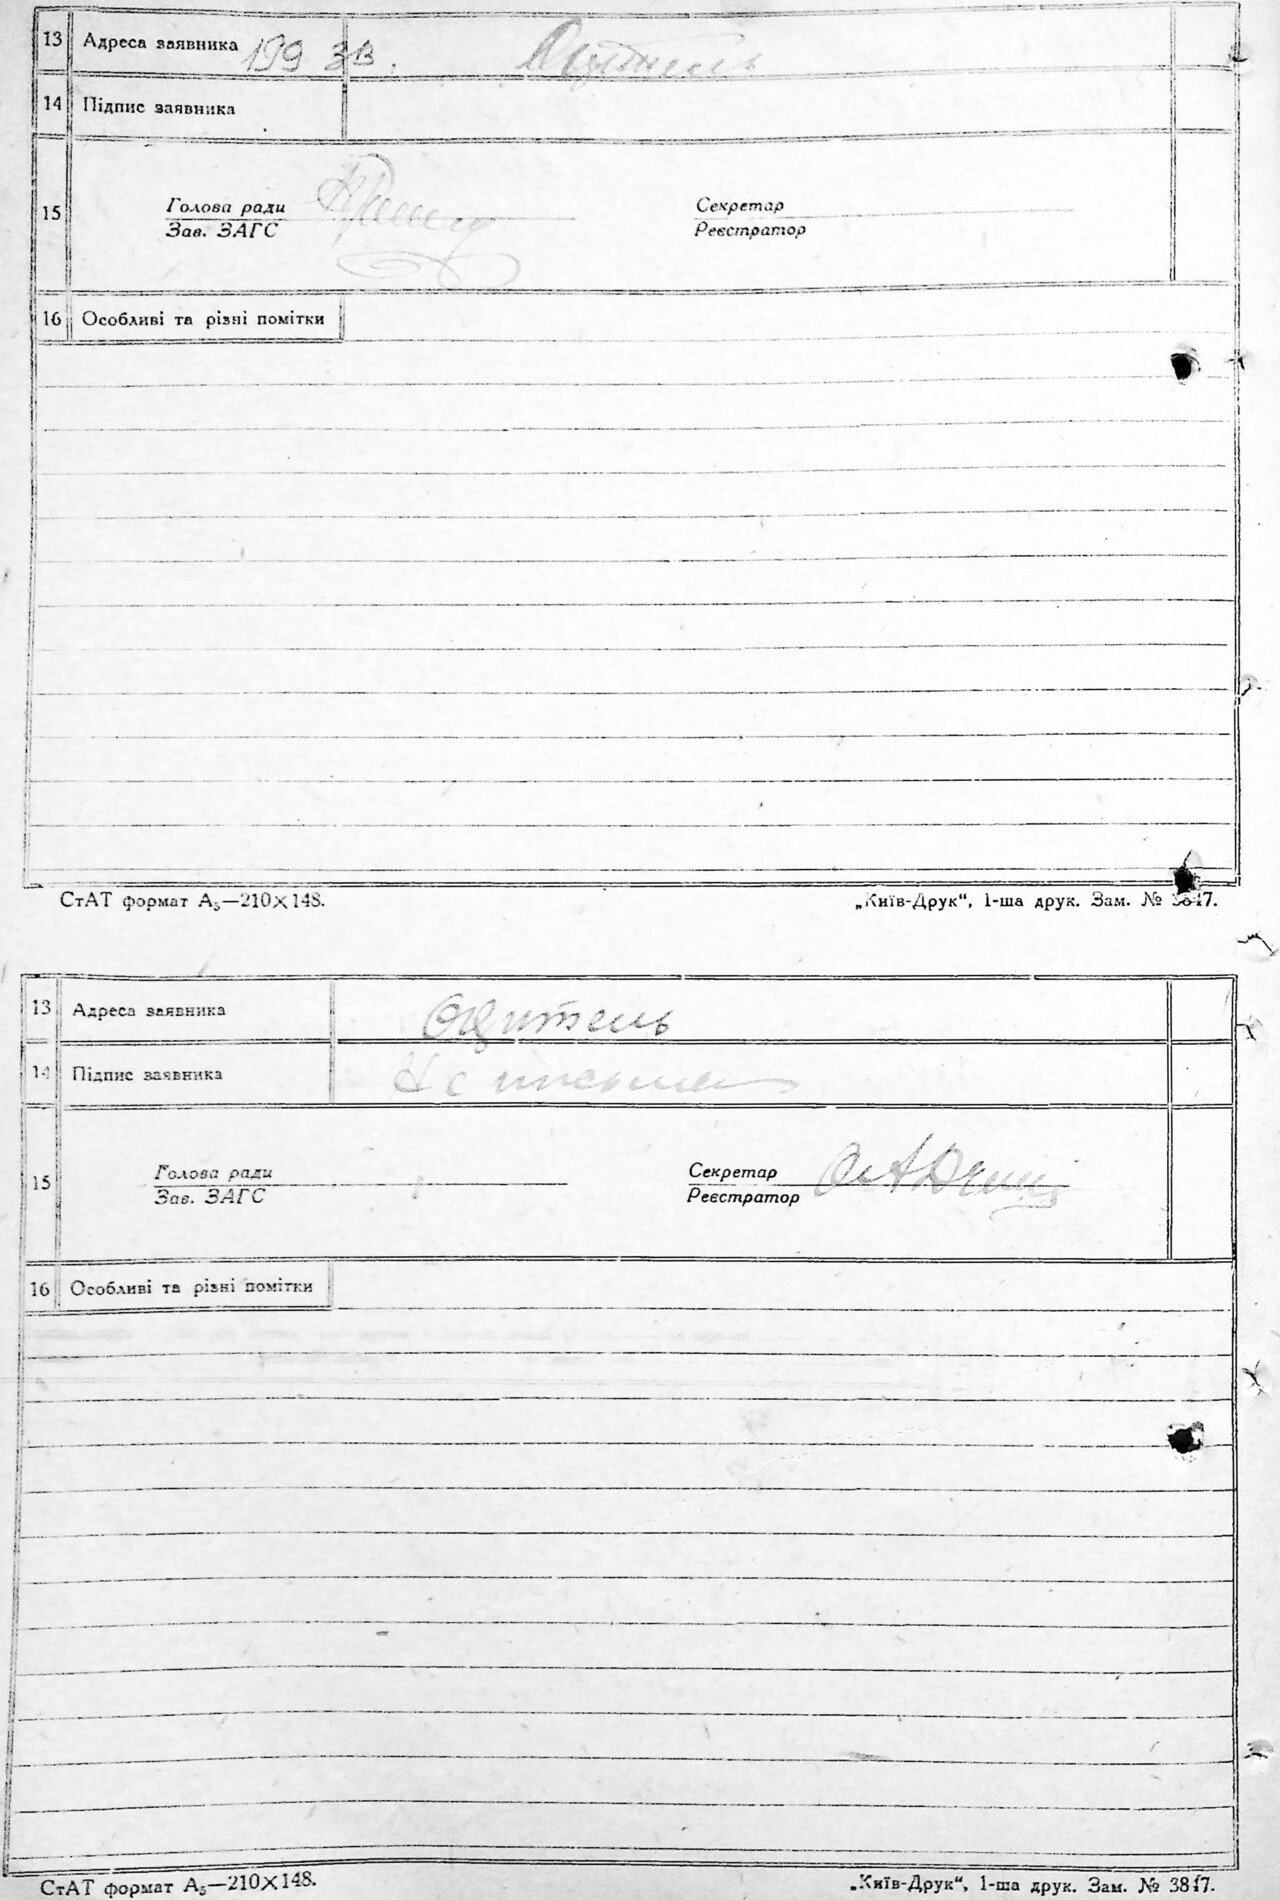 13 Адреса заявника 159 зв. Оцитель
14 Підпис заявника
15 Голова ради Секретар
Зав. ЗАГС Реєстратор
16 Особливі та різні помітки
СтАТ формат А₅—210×148. „Київ-Друк“, 1-ша друк. Зам. № 3847.
13 Адреса заявника Оцитель
14 Підпис заявника
15 Голова ради Секретар
Зав. ЗАГС Реєстратор
16 Особливі та різні помітки
СтАТ формат А₅—210×148. „Київ-Друк“, 1-ша друк. Зам. № 3847.